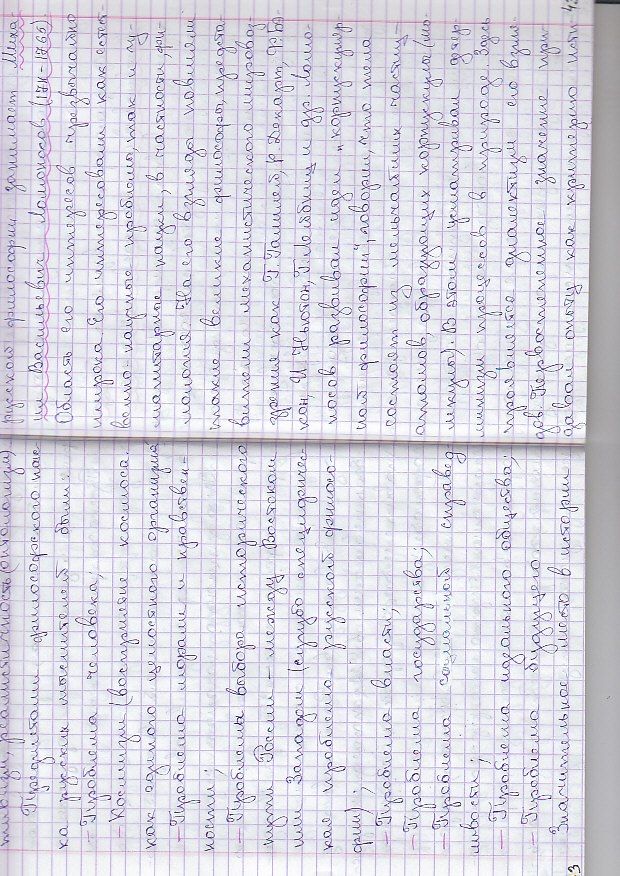 реалистичность
Предметами философского поис-
ка русских мыслителей были:
– Проблема человека;
– Космизм (восприятие космоса
как единого целостного организма
– Проблемы морали и нравствен-
ности;
– Проблемы выбора исторического
пути России – между Востоком
и Западом (сугубо специфичес-
кая проблема русской филосо-
фии);
– Проблема власти;
– Проблема государства;
– Проблема социальной справед-
ливости;
– Проблема идеального общества;
– Проблема будущего.
Значительное место в истории
русской философии занимает Миха-
ил Васильевич Ломоносов (1711-1765).
Область его интересов чрезвычайно
широка. Его интересовали как естест-
венно-научные проблемы, так и гу-
манитарные науки, в частности, фи-
лософия. На его взгляды повлияли
такие великие философы, предста-
вители механистического мировоз-
зрения как Г. Галилей, Р. Декарт, Ф. Бэ-
кон, И. Ньютон, Г. Лейбниц и др. Ломо-
носов развивал идеи „корпускуляр
ной философии“, говорил, что тела
состоят из мельчайших частиц –
атомов, образующих корпускулы (мо-
лекулы). В этом усматривал
процессов в природе. Здесь
проявляется диалектизм его взгля-
дов. Первостепенное значение при-
давал опыту как критерию исти-